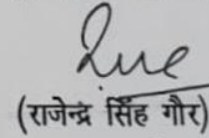 (राजेन्द्र सिंह गौर)